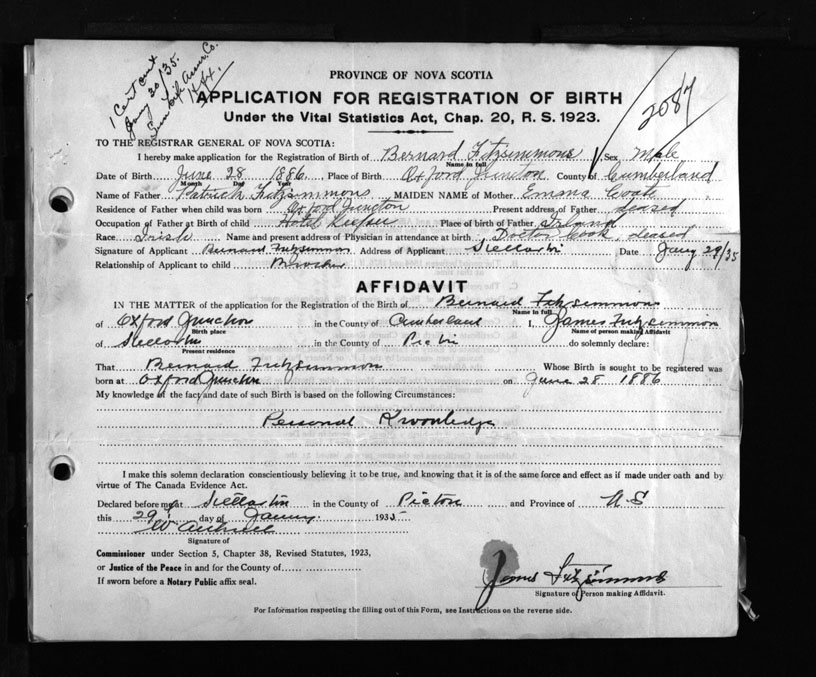 1 Cert out
Jany 30/35.
Sun Life Assur. Co.
Hfx.
2087
PROVINCE OF NOVA SCOTIA
APPLICATION FOR REGISTRATION OF BIRTH
Under the Vital Statistics Act, Chap. 20, R. S. 1923.
TO THE REGISTRAR GENERAL OF NOVA SCOTIA:
I hereby make application for the Registration of Birth of Bernard Fitzsimmons Sex Male
Name in full
Date of Birth June 28 1886 Place of Birth Oxford Junction County of Cumberland
Month Day Year
Name of Father Patrick Fitzsimmons MAIDEN NAME of Mother Emma Coate
Residence of Father when child was born Oxford Junction Present address of Father deased
Occupation of Father at Birth of child Hotel Keeper Place of birth of Father Irland
Race Irish Name and present address of Physician in attendance at birth Doctor Cook, deased
Signature of Applicant Bernard Fitzsimmon Address of Applicant Stellarton Date Jany 29/35
Relationship of Applicant to child Brother
AFFIDAVIT
IN THE MATTER of the application for the Registration of the Birth of Bernard Fitzsimmons
Name in full
of Oxford Junction in the County of Cumberland I, James Fitzsimmon
Birth place Name of person making Affidavit
of Stellarton in the County of Pictou do solemnly declare:
Present residence
That Bernard Fitzsimmon Whose Birth is sought to be registered was
born at Oxford Junction on June 28 1886
My knowledge of the fact and date of such Birth is based on the following Circumstances:
Personal Knowledge
I make this solemn declaration conscientiously believing it to be true, and knowing that it is of the same force and effect as if made under oath and by
virtue of The Canada Evidence Act.
Declared before me at Stellarton in the County of Pictou and Province of N S
this 29 day of January 1935
Signature of
Commissioner under Section 5, Chapter 38, Revised Statutes, 1923,
or Justice of the Peace in and for the County of
If sworn before a Notary Public affix seal.
James Fitzsimmons
Signature of Person making Affidavit.
For Information respecting the filling out of this Form, see Instructions on the reverse side.